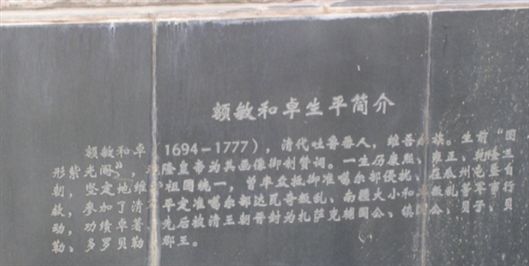 额敏和卓生平简介
额敏和卓(1694-1777),清代吐鲁番人,维吾尔族。生前“图
形紫光阁”,乾隆皇帝为其画像御制赞词。一生历康熙、雍正、乾隆三
朝,坚定地维护祖国统一,曾率众抵御准噶尔部侵扰、在瓜州屯垦自
救,参加了清平定准噶尔部达瓦奇叛乱、南疆大小和卓叛乱等军事行
动,功绩卓著,先后被清王朝晋封为扎萨克辅国公、镇国公、贝子、贝
勒、多罗贝勒、郡王。